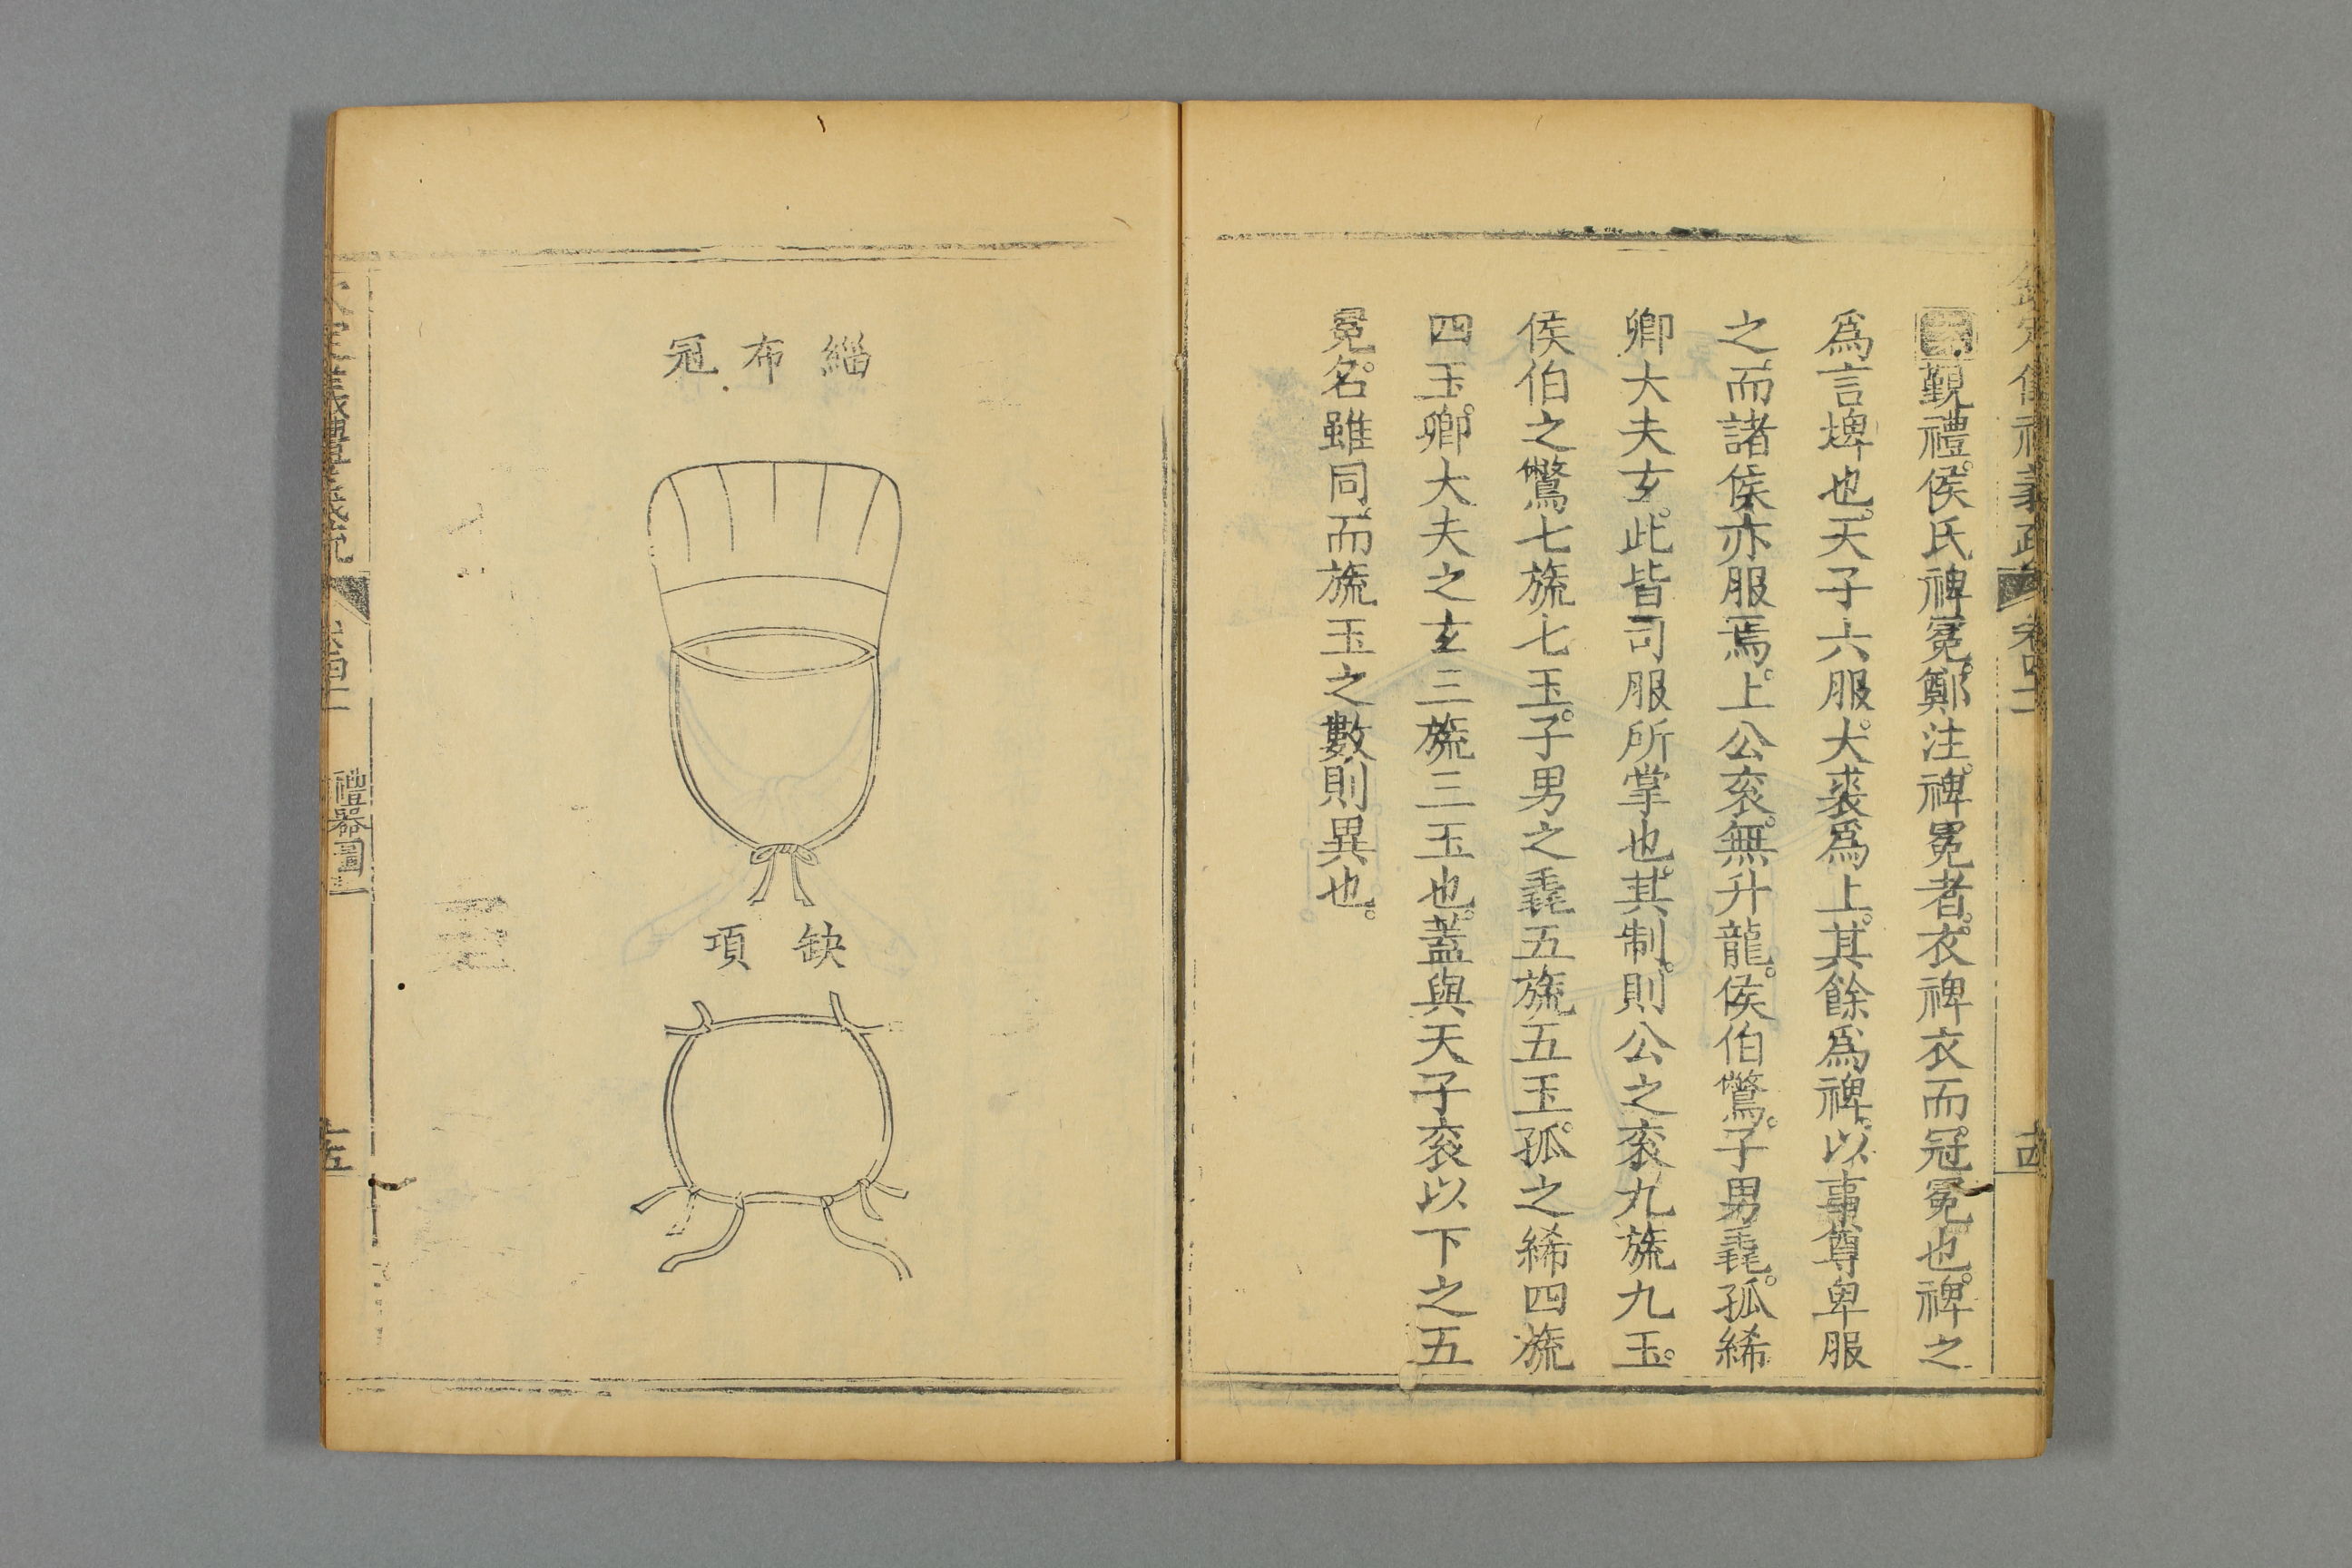 覲禮侯氏裨冕鄭注裨冕者衣裨衣而冠冕也裨之
爲言埤也天子六服大裘爲上其餘爲裨以事尊卑服
之而諸侯亦服焉上公衮無升龍侯伯鷩子男毳孤絺
卿大夫𤣥此皆司服所掌也其制則公之衮九旒九玉
侯伯之鷩七旒七玉子男之毳五旒五玉孤之絺四旒
四玉卿大夫之𤣥三旒三玉也蓋與天子衮以下之五
冕名雖同而旒玉之數則異也
緇布冠
缺項
禮器圖